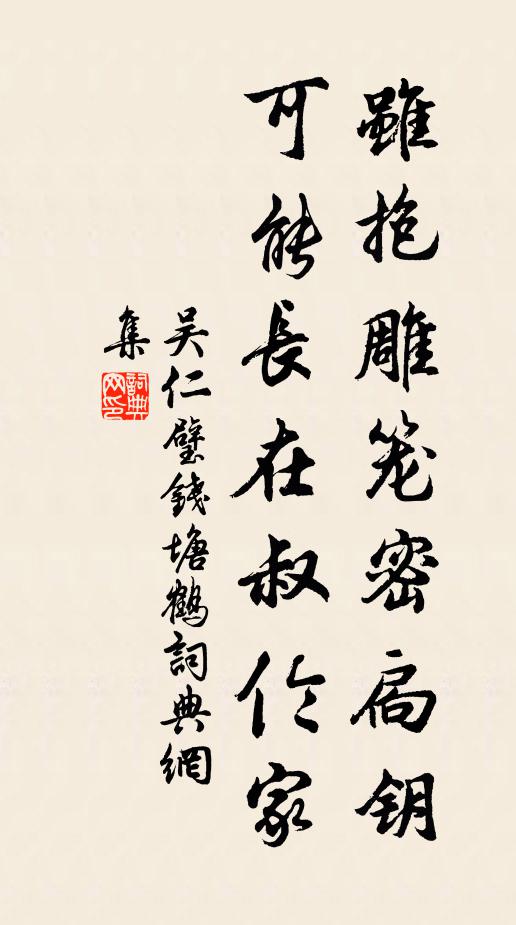 雖抱雕笼密扃钥
可能長在叔伦家
吳仁璧錢塘鶴詞典網
集
詞典
网印